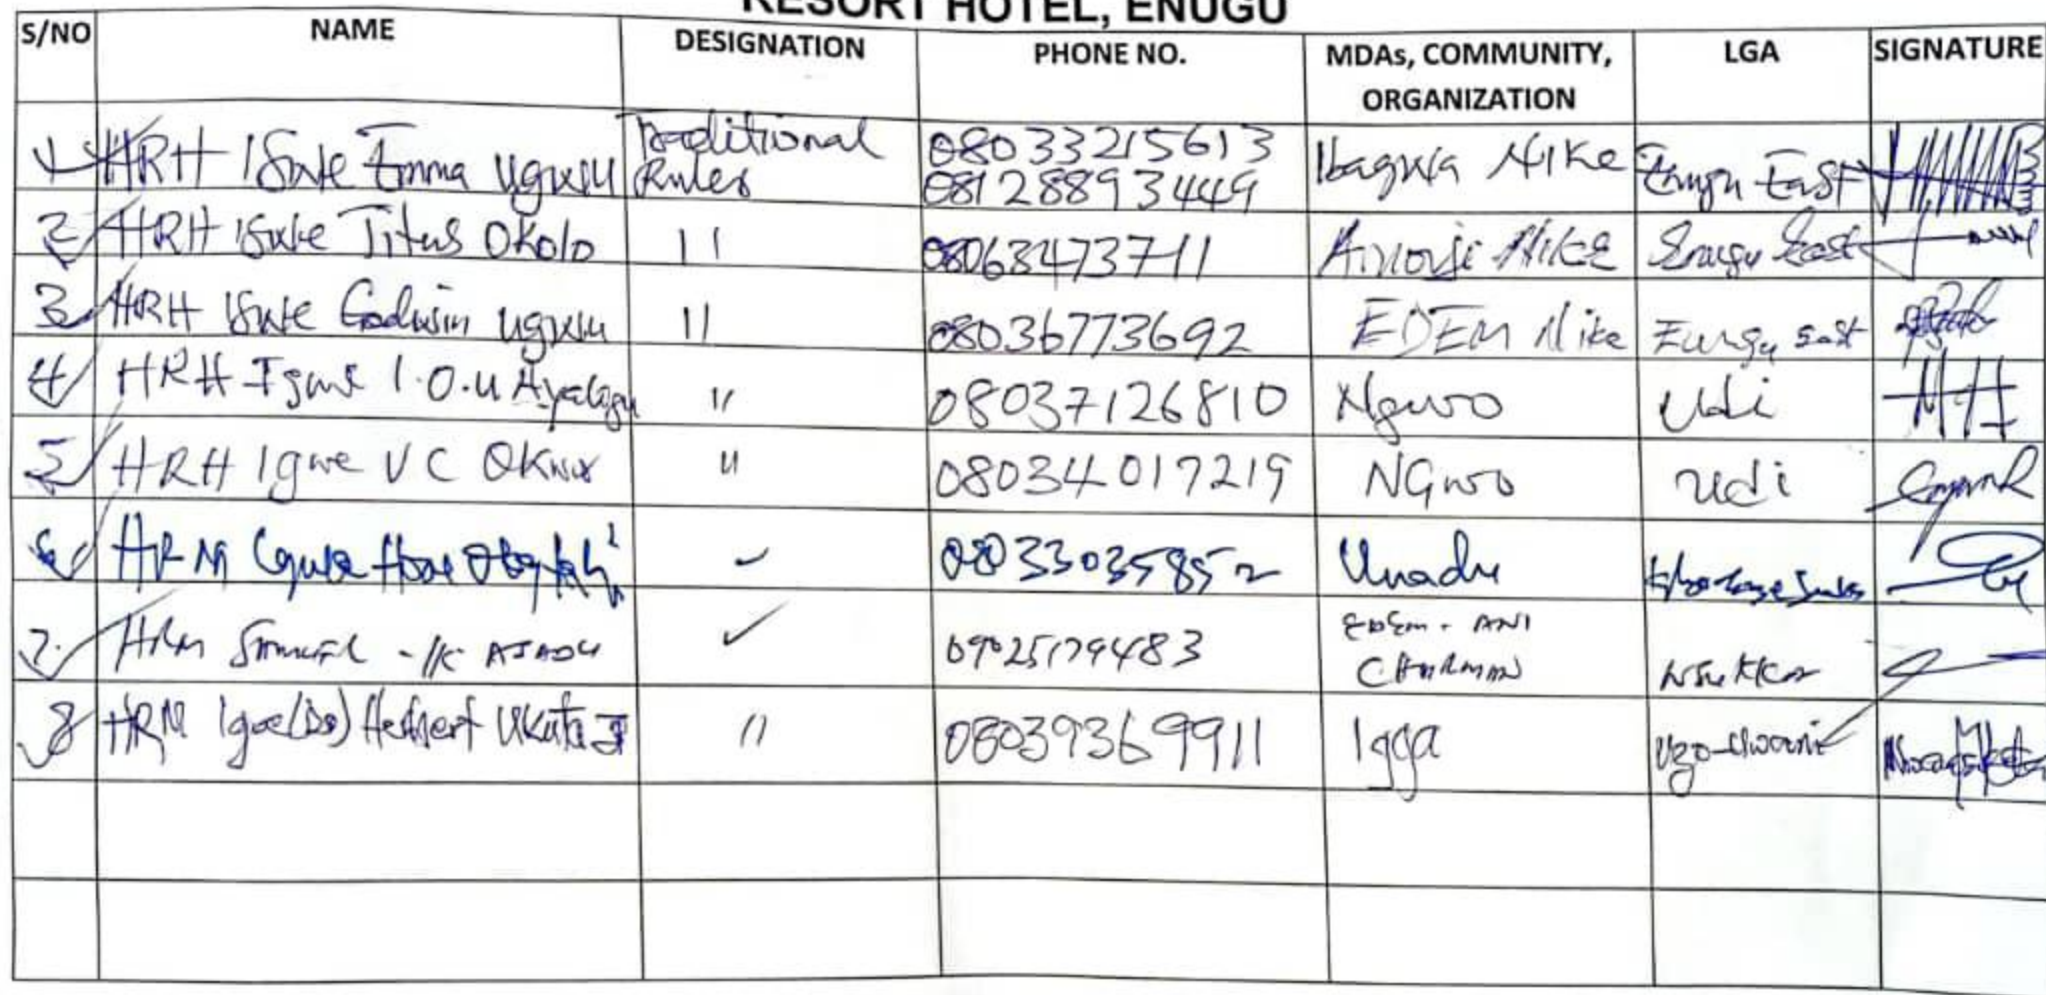 RESORT HOTEL, ENUGU
S/NO NAME DESIGNATION PHONE NO. MDAs, COMMUNITY, ORGANIZATION LGA SIGNATURE
1 HRH Igwe Emma Ugwu Traditional Rules 08033215613 08128893449 Ibagwa Nike Enugu East
2 HRH Igwe Titus Okolo 11 08063473711 Nike Enugu East
3 HRH Igwe Godwin Ugwu 11 08036773692 EDEM Nike Enugu East
4 HRH Igwe I.O.U Ayalogu 11 08037126810 Ngwo Udi
5 HRH Igwe VC Okwor 11 08034017219 NGwo Udi
6 HRM 08033035852 Unadu
7. HRM Samuel -IK ASADU 09025179483 EDEM - ANI Nsukka
8 HRM Igwe (Dr) Herbert Ukuta 11 08039369911 Igga Uzo-Uwani